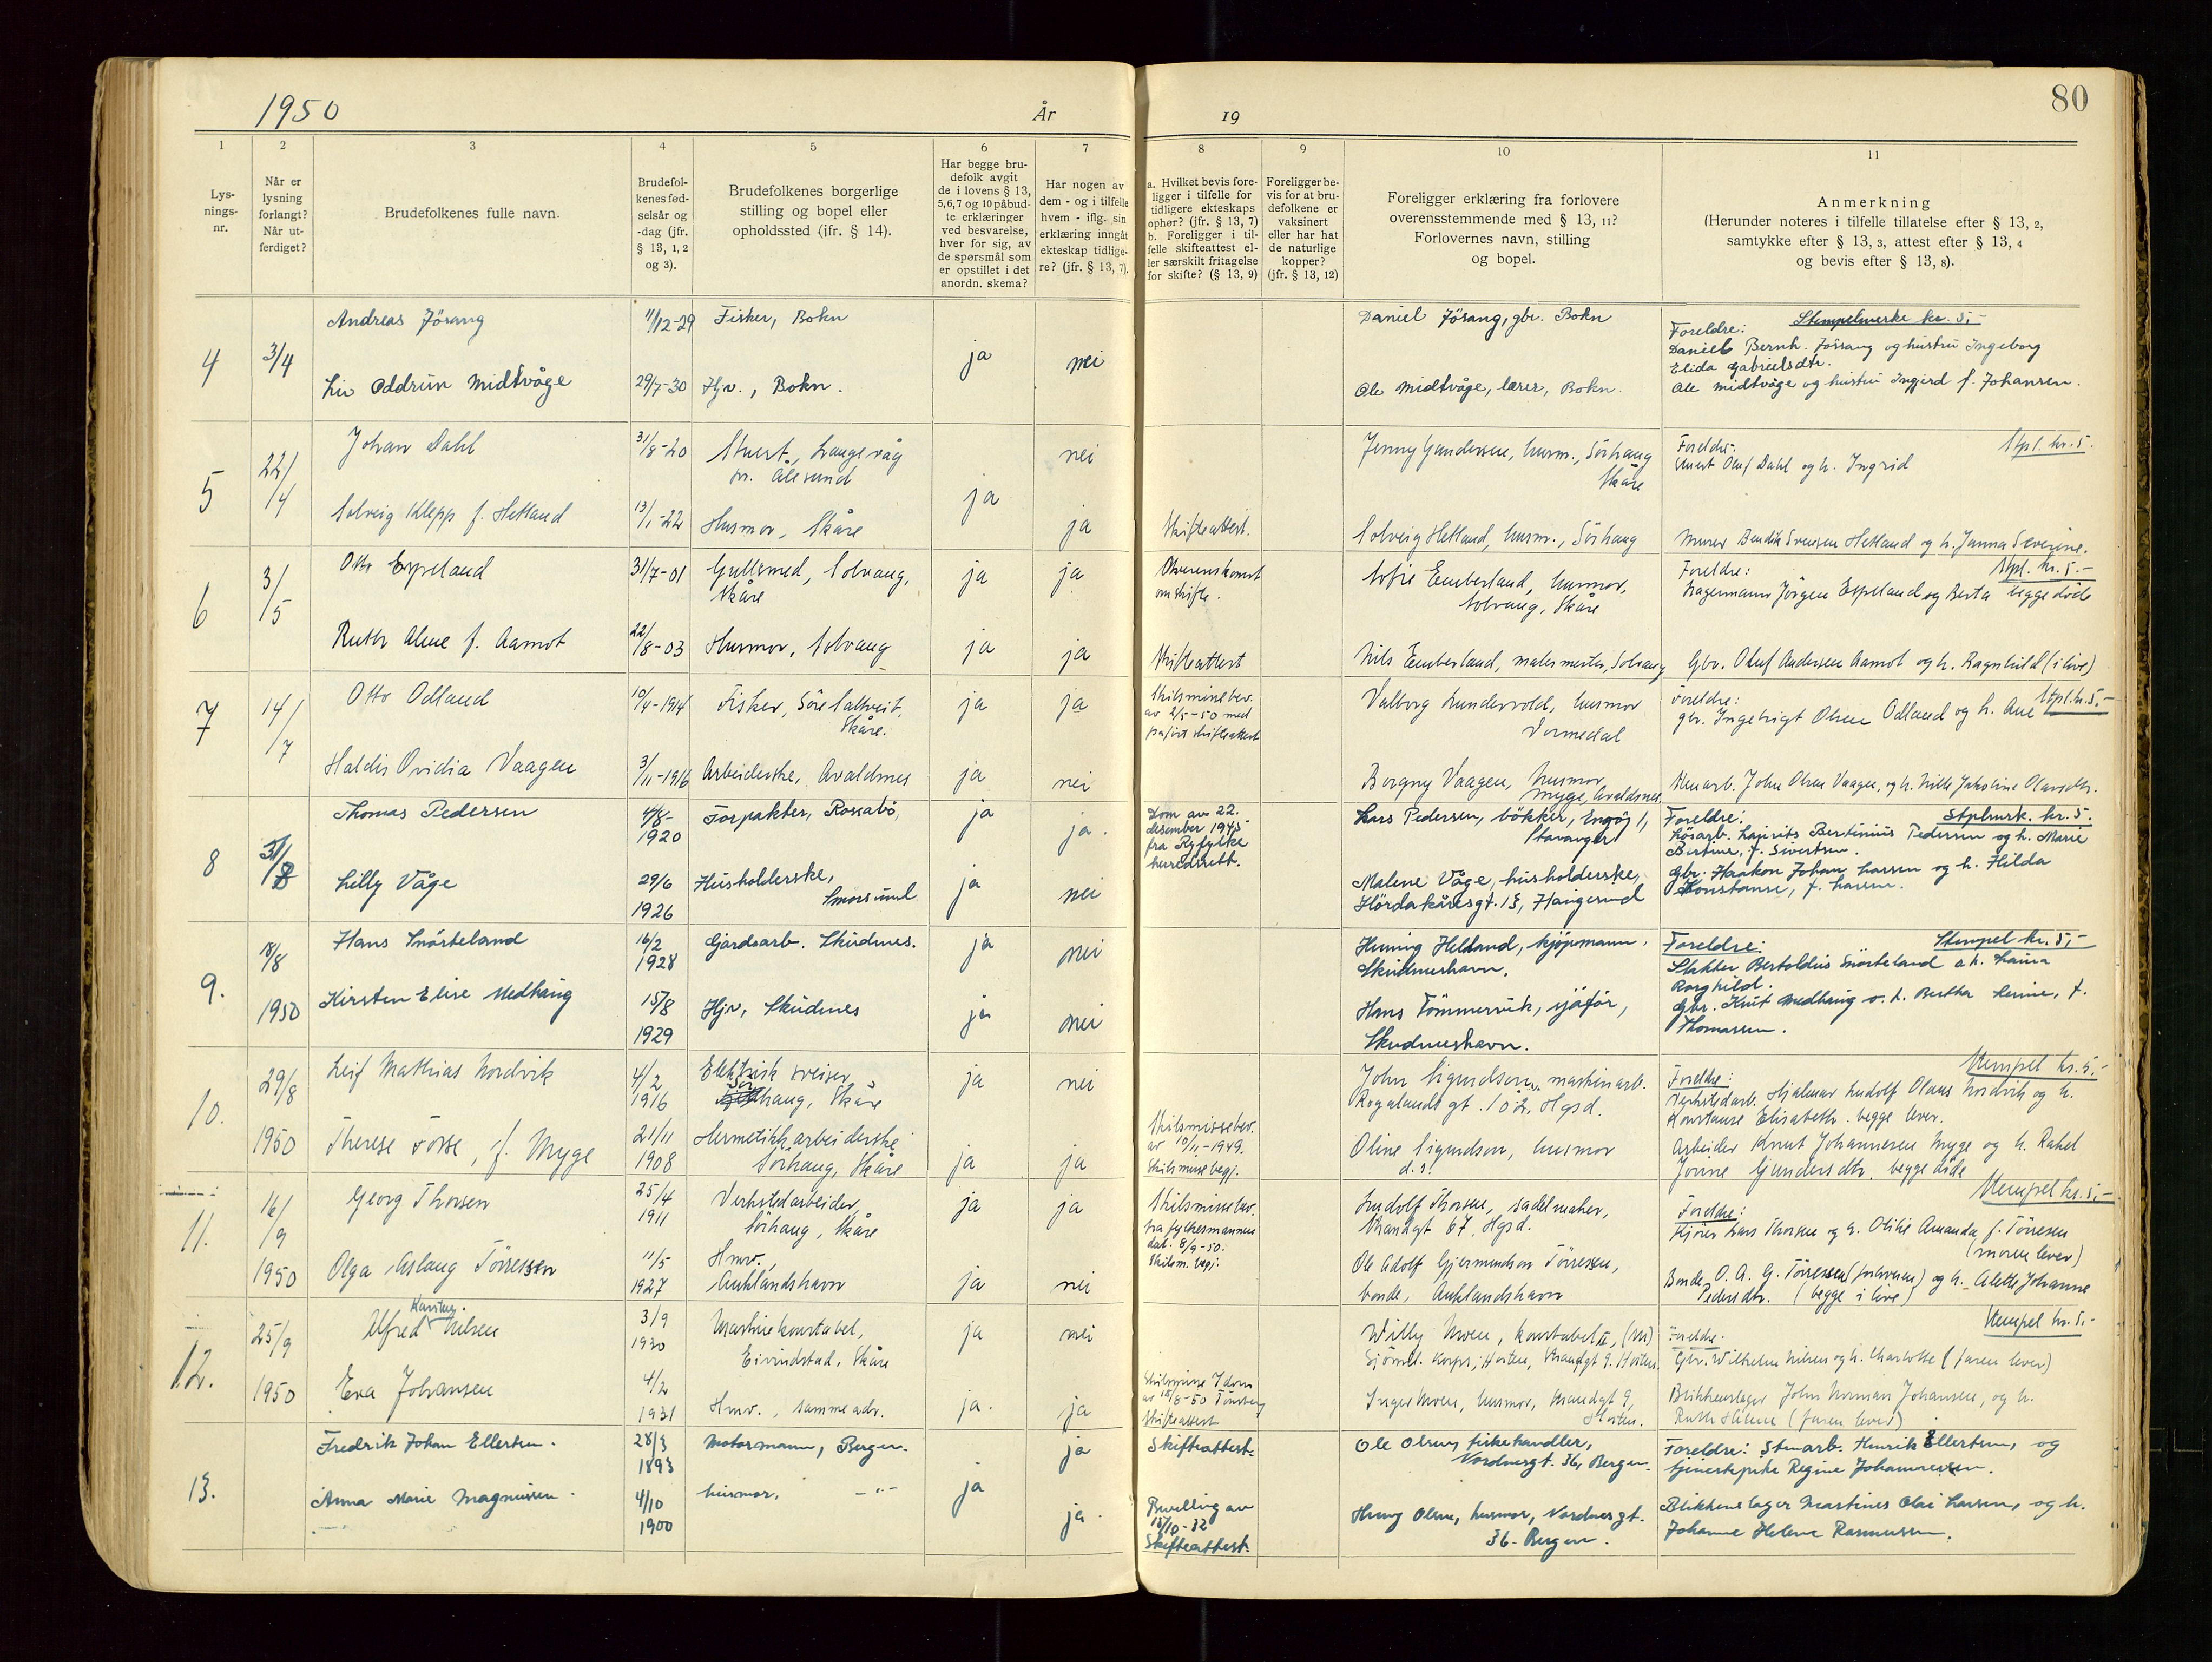 1950
År
19
80
1
2
3
4
5
6
7
8
9
10
11
Lys-
nings-
nr.
Når er
lysning
forlangt?
Når ut-
ferdiget?
Brudefolkenes fulle navn.
Brudefol-
kenes fød-
selsår og
-dag (jfr.
§ 13, 1, 2
og 3).
Brudefolkenes borgerlige
stilling og bopel eller
opholdssted (jfr. § 14).
Har begge bru-
defolk avgit
de i lovens § 13,
5,6,7 og 10 påbud-
te erklæringer
ved besvarelse,
hver for sig, av
de spørsmål som
er opstillet i det
anordn. skema?
Har nogen av
dem - og i tilfelle
hvem - iflg. sin
erklæring inngåt
ekteskap tidlige-
re? (jfr. § 13, 7).
a. Hvilket bevis fore-
ligger i tilfelle for
tidligere ekteskaps
ophør? (jfr. § 13, 7)
b. Foreligger i til-
felle skifteattest el-
ler særskilt fritagelse
for skifte? (§ 13, 9)
Foreligger be-
vis for at bru-
defolkene er
vaksinert
eller har hat
de naturlige
kopper?
(jfr. § 13, 12)
Foreligger erklæring fra forlovere
overensstemmende med § 13, 11?
Forlovernes navn, stilling
og bopel.
Anmerkning
(Herunder noteres i tilfelle tillatelse efter § 13, 2,
samtykke efter § 13, 3, attest efter § 13, 4
og bevis efter § 13, 8).
4
3/4
Andreas Jösang
11/12-29
Fisker, Bokn
ja
nei
Daniel Jösang, gbr. Bokn
Stempelmerke kr. 5,-
Foreldre:
Daniel Bernh. Jösang og hustru Ingeborg
Elida Gabrielsdtr.
Liv Oddrun Midtvåge
29/7-30
Hjv., Bokn.
Ole Midtvåge, lærer, Bokn.
Ole Midtvåge og hustru Ingjerd f. Johansen.
5
22/4
Johan Dahl
31/8-20
Stuert, Langevåg
pr. Ålesund
ja
nei
Jenny Gundersen, husm., Sörhaug
Skåre
Stpl. kr. 5.
Foreldre:
Stuert Oluf Dahl og h. Ingrid
Solveig Klepp f. Hetland
13/1-22
Husmor, Skåre
ja
Skifteattest.
Solveig Hetland, husm., Sörhaug
Murer Bendik Svensen Hetland og h. Janna Severine.
6
3/5
Otto Espeland
31/7-01
Gullsmed, Solvang,
Skåre
ja
ja
Overenskomst
om skifte.
Sofie Emberland, husmor,
Solvang, Skåre
Stpl. kr. 5.-
Foreldre:
Lagermann Jörgen Espeland og Berta begge döde
Ruth Aline f. Aamot
22/8-03
Husmor, Solvang
ja
ja
Skifteattest
Nils Emberland, malermester, Solvang
Gbr. Oluf Andersen Aamot og h. Ragnhild (i live)
7
14/7
Otto Odland
10/4-1914
Fisker, Söre Saltveit,
Skåre.
ja
ja
Skilsmissebev.
av 2/5-50 med
påfört skifteattest
Valborg Lundervold, husmor
Vormedal
Stpl. kr. 5,-
Foreldre:
gbr. Ingebrigt Olsen Odland og h. Ane
Haldis Ovidia Vaagen
3/11-1916
Arbeiderske, Avaldsnes
ja
nei
Borgny Vaagen, husmor
Myge, Avaldsnes
Stenarb. John Olsen Vaagen, og h. Nille Jakobine Olavsdtr.
8
31/7
Thomas Pedersen
4/8-
1920
Forpakter, Rossabö,
ja
ja.
Dom av 22.
desember 1945
fra Ryfylke
herredsrett.
Lars Pedersen, bökker, Engöy 1,
Stavanger
Stplmrk. kr. 5.
Foreldre:
Lösarb. Laurits Bertinius Pedersen og h. Marie
Bertine, f. Sivertsen.
Lilly Våge
29/6
1926
Husholderske,
Smorsund
ja
nei
Malene Våge, husholderske,
Hördakåresgt. 13, Haugesund
Gbr. Haakon Johan Larsen og h. Hilda
Konstanse, f. Larsen.
9.
18/8
1950
Hans Snörteland
16/2
1928
Gjardsarb. Skudnes.
ja
nei
Henning Helland, kjöpmann,
Skudneshavn.
Stempel kr. 5,-
Foreldre:
Slakter Bertoldius Snörteland o.h. Laura
Borghild.
Kirsten Elise Medhaug
15/8
1929
Hjv, Skudnes
ja
nei
Hans Tömmervik, sjåför,
Skudneshavn.
Gbr. Knut Medhaug o. h. Berthe Serine, f.
Thomassen.
10.
29/8
1950
Leif Mathias Nordvik
4/2
1916
Elektrisk sveiser
Sörhaug, Skåre
ja
nei
John Sigurdson, maskinarb.
Rogalandsgt. 102, Hgsd.
Stempel kr. 5,-
Foreldre:
Verkstedarb. Hjalmar Ludolf Olaus Nordvik og h.
Konstanse Elisabeth. begge lever.
Therese Fosse, f. Myge
21/11
1908
Hermetikkarbeiderske
Sörhaug, Skåre
ja
ja
Skilsmissebev.
av 10/11-1949.
Skilsmissebegj.
Oline Sigurdson, husmor
d.s.
Arbeider Knut Johannesen Myge og h. Rakel
Jonne Gundersdtr. begge döde
11.
16/9
1950
Georg Thorsen
25/4
1911
Verkstedarbeider,
Sörhaug, Skåre
ja
ja
Skilsmissebev.
fra fylkesmannen
dat. 8/9-50.
Skilsm. begj.
Ludolf Thorsen, sadelmaker,
Strandgt 67, Hgsd.
Stempel kr. 5,-
Foreldre:
Kjörer Lars Thorsen og h. Oline Amanda, f. Törresen
(moren lever)
Olga Aslaug Törressen
11/5
1927
Hmv.,
Auklandshavn
ja
nei
Ole Adolf Gjermundson Törressen,
bonde, Auklandshavn
Bonde O. A. G. Törressen (forloveren) og h. Alette Johanne
Pedersdtr. (begge i live)
12.
25/9
1950
Alfred Nilsen
3/9
1930
Maskinkonstabel,
Eivindstad, Skåre
ja
nei
Willy Moen, konstabel II, (M)
Sjömil. Korps, Horten, Strandgt 9. Horten.
Stempel kr. 5.-
Foreldre:
Gbr. Wilhelm Nilsen og h. Charlotte (faren lever)
Eva Johansen
4/2
1931
Hmv., samme adr.
ja.
ja
av 15/8-50 Tönsberg
Skifteattest
Inger Moen, husmor, Strandgt 9,
Horten.
Blikkenslager John Norman Johansen, og h.
Ruth Helene (faren lever)
13.
Fredrik Johan Ellertsen.
28/3
1893
Motormann, Bergen.
ja
ja
Skifteattest.
Ole Olsen, fiskehandler,
Nordnesgt. 36, Bergen.
Foreldre: Stenarb. Henrik Ellertsen, og
tjenestepike Regine Johannessen.
Anna Marie Magnussen.
4/10
1900
husmor, -"-
ja.
Bevilling av
15/10-32
Skifteattest.
Henny Olsen, husmor, Nordnesgt.
36. Bergen.
Blikkenslager Martines Olai Larsen, og h.
Johanne Helene Rasmussen.